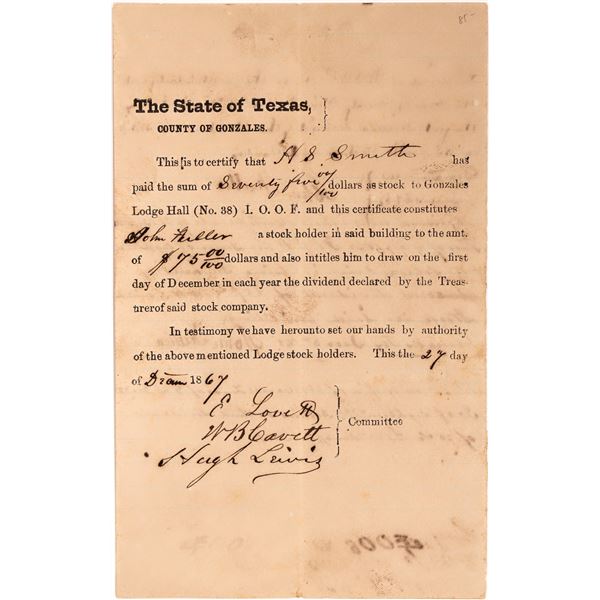 85-
The State of Texas,
COUNTY OF GONZALES.
This is to certify that H S Smith has
paid the sum of Seventy five 00/100 dollars as stock to Gonzales
Lodge Hall (No. 38) I. O. O. F. and this certificate constitutes
John Filler a stock holder in said building to the amt.
of $75 00/100 dollars and also intitles him to draw on the first
day of December in each year the dividend declared by the Treas-
urerof said stock company.
In testimony we have herounto set our hands by authority
of the above mentioned Lodge stock holders. This the 27 day
of 1867
E Lovett
W B Cavett
Hugh Lewis
Committee